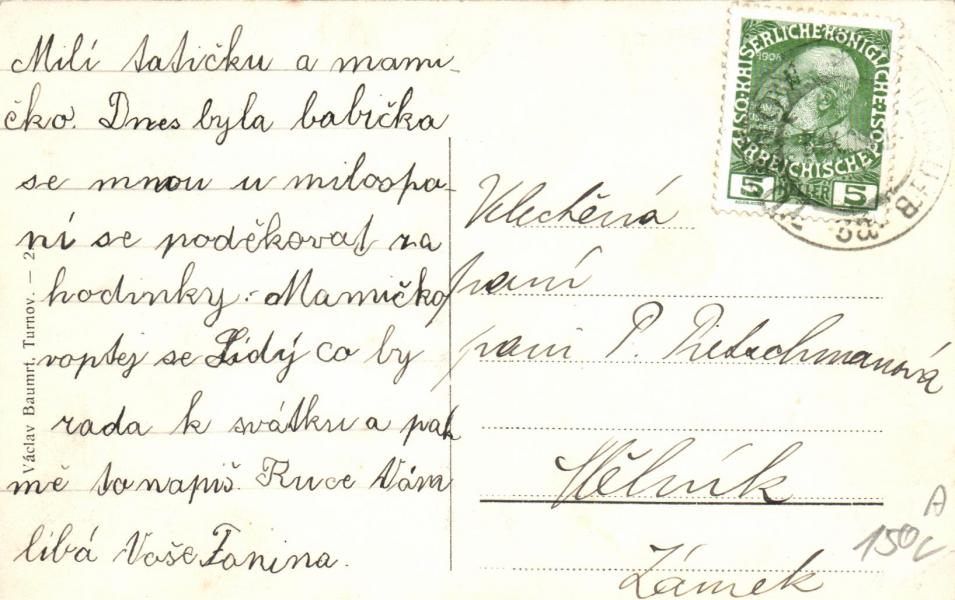 Milí tatíčku a mami-
čko. Dnes byla babička
se mnou u milospa-
ní se poděkovat za
hodinky. Mamičko
voptej se Lídý co by
ráda k svátku a pak
mě to napiš. Ruce Vám
líbá Vaše Fanina.
Václav Baumrt, Turnov. — 2
KAISERLICHE KÖNIGLICHE
ÖSTERREICHISCHE POST
1908
5 HELLER 5
Velectěná
paní
paní P. Pietschmanová
Mělník
Zámek
A
150